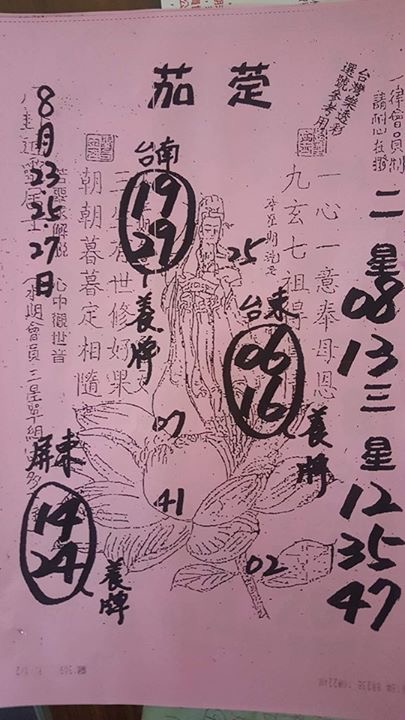 茄萣
台灣樂透彩
選號參考用
一律會員制
二星
08
13
三星
12
35
47
一心一意奉母恩
九玄七祖得
25
台東
06
16
養牌
台南
19
29
養牌
朝朝暮暮定相隨
心中觀世音
8月23
25.27日
07
41
02
屏東
14
24
養牌